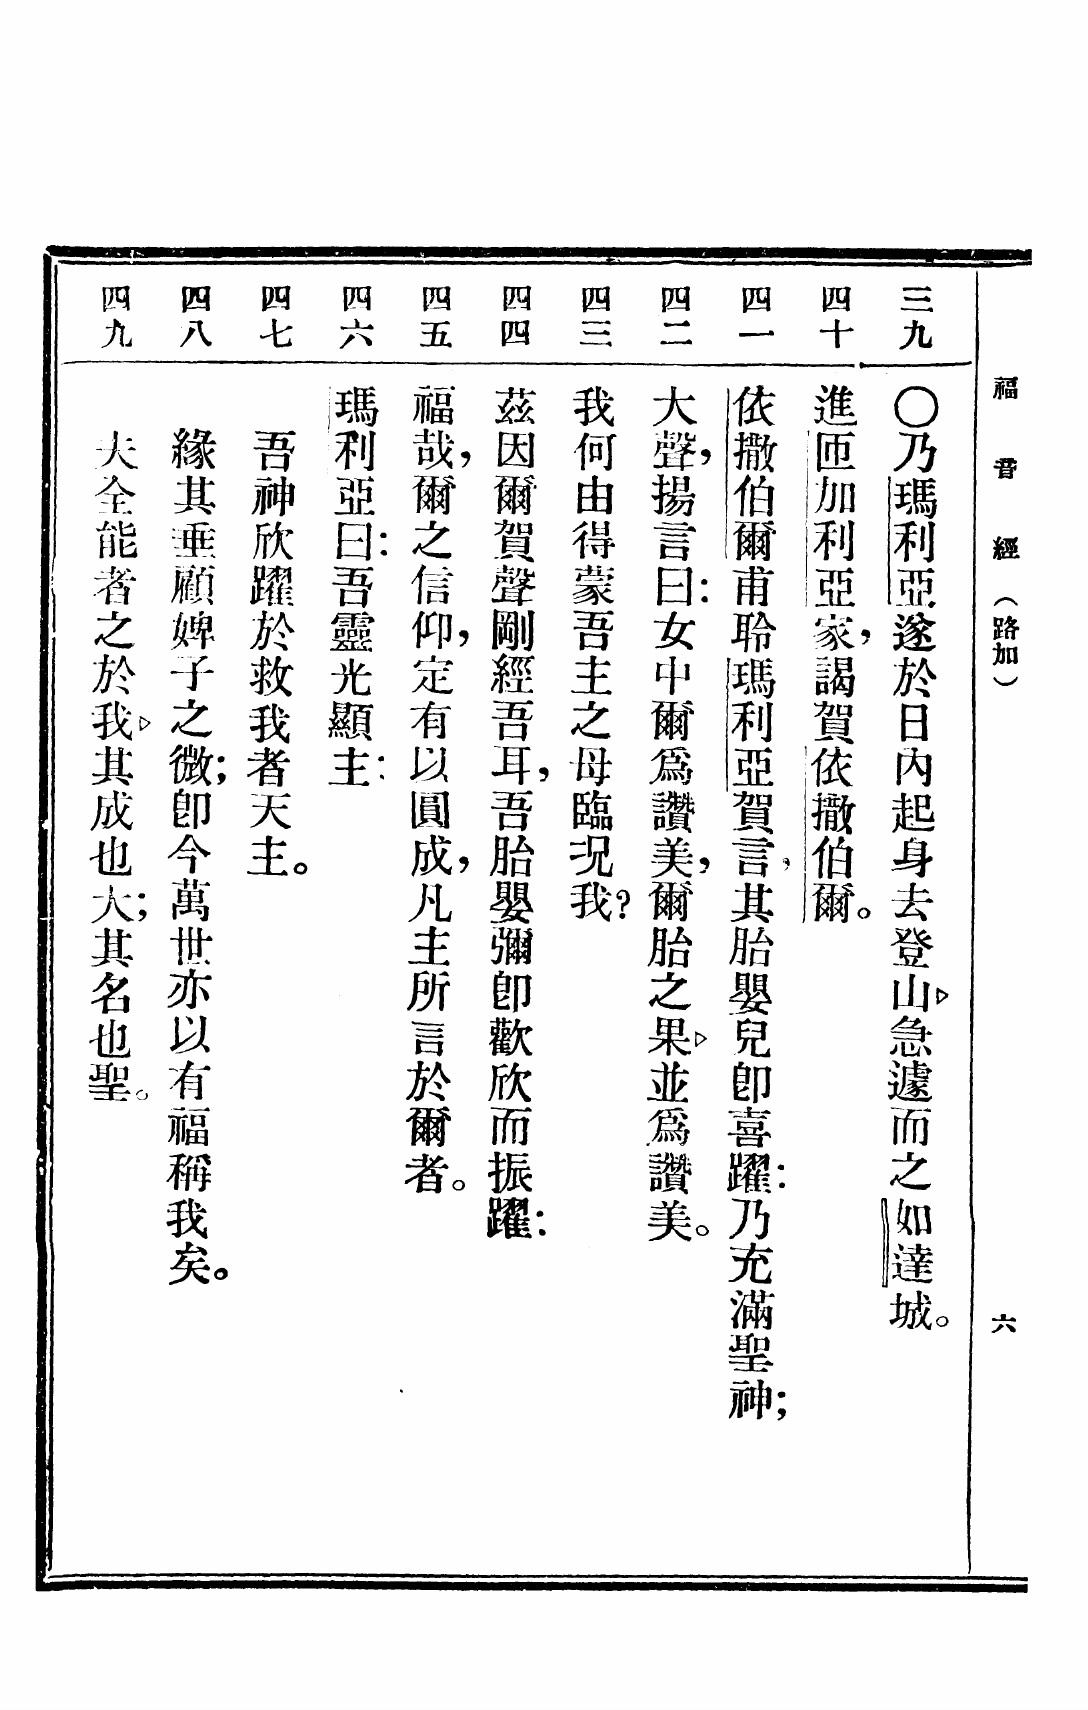 福音經（路加）　六
三九　〇乃瑪利亞遂於日內起身去登山▷急遽而之如達城。
四十　進匝加利亞家，謁賀依撒伯爾。
四一　依撒伯爾甫聆瑪利亞賀言，其胎嬰兒卽喜躍：乃充滿聖神；
四二　大聲，揚言曰：女中爾爲讚美，爾胎之果▷並爲讚美。
四三　我何由得蒙吾主之母臨況我？
四四　茲因爾賀聲剛經吾耳，吾胎嬰彌卽歡欣而振躍：
四五　福哉，爾之信仰，定有以圓成，凡主所言於爾者。
四六　瑪利亞曰：吾靈光顯主：
四七　吾神欣躍於救我者天主。
四八　緣其垂顧婢子之微；卽今萬世亦以有福稱我矣。
四九　夫全能者之於我▷其成也大；其名也聖。